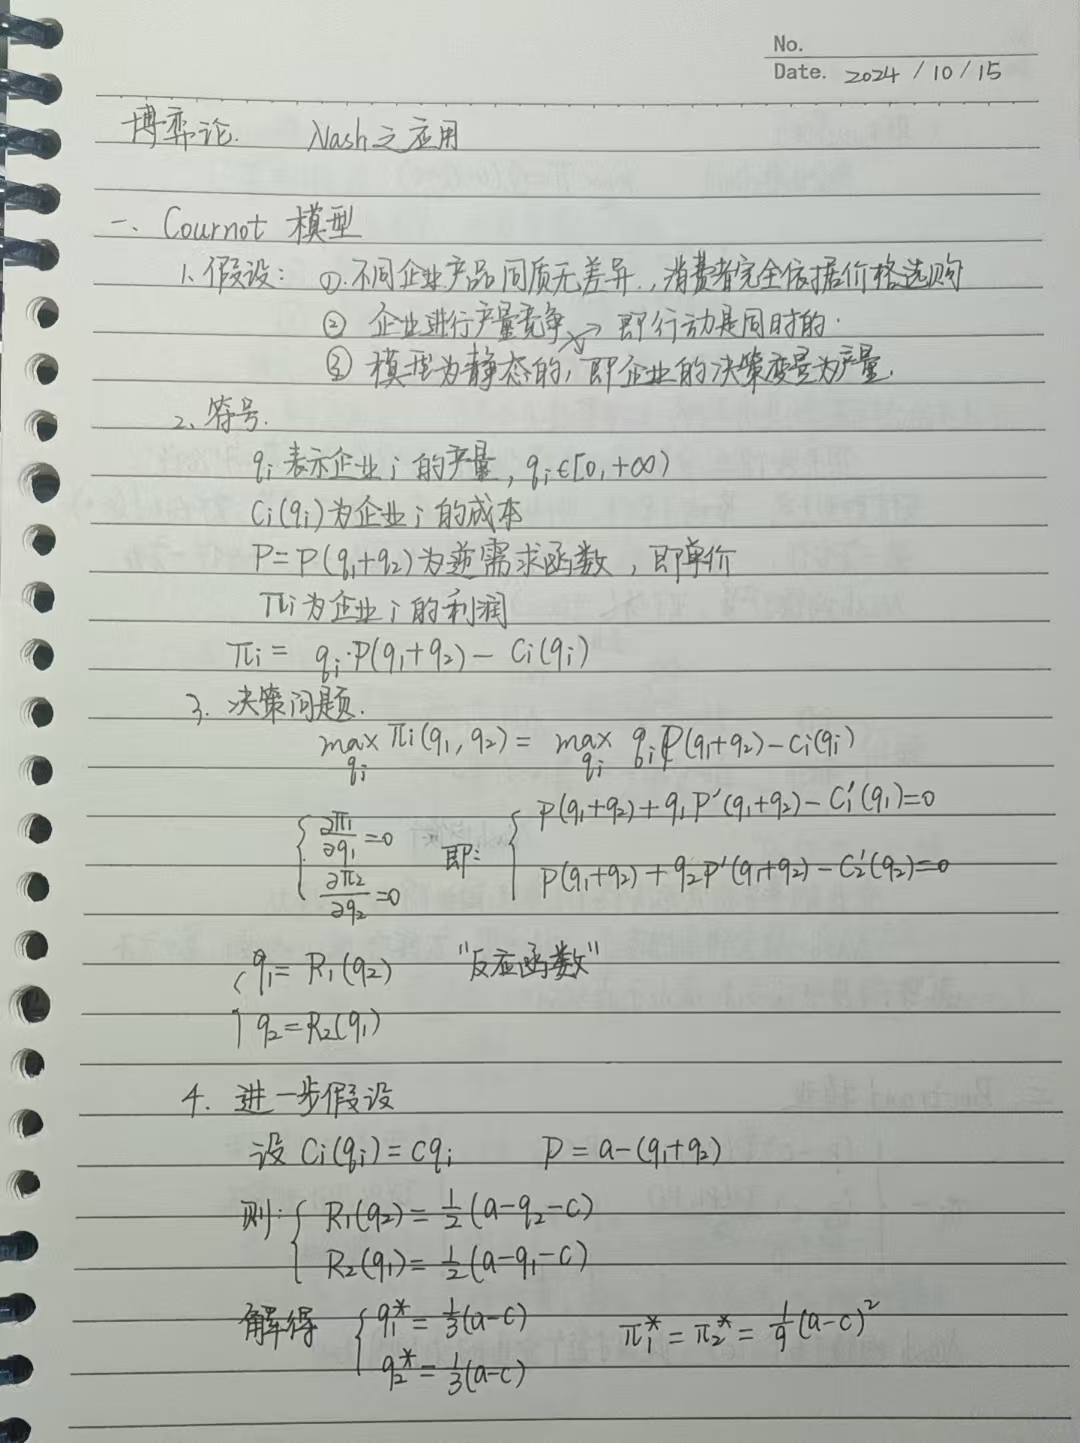 No.
Date. 2024 / 10 / 15
博弈论. Nash之应用
一、Cournot 模型
1. 假设: ①. 不同企业产品同质无差异, 消费者完全依据价格选购
② 企业进行产量竞争 → 即行动是同时的.
③ 模型为静态的, 即企业的决策变量为产量.
2、符号.
qᵢ 表示企业 i 的产量, qᵢ∈[0, +∞)
Cᵢ(qᵢ)为企业 i 的成本
P=P(q₁+q₂)为逆需求函数, 即单价
πᵢ为企业 i 的利润
πᵢ = qᵢ·P(q₁+q₂) − Cᵢ(qᵢ)
3. 决策问题.
max_{qᵢ} πᵢ(q₁, q₂) = max_{qᵢ} qᵢP(q₁+q₂)−Cᵢ(qᵢ)
{ ∂π₁/∂q₁ =0 即: { P(q₁+q₂)+q₁P′(q₁+q₂)−C₁′(q₁)=0
∂π₂/∂q₂ =0 P(q₁+q₂)+q₂P′(q₁+q₂)−C₂′(q₂)=0
{ q₁= R₁(q₂) “反应函数”
q₂=R₂(q₁)
4. 进一步假设
设 Cᵢ(qᵢ)=cqᵢ P=a−(q₁+q₂)
则: { R₁(q₂)=½(a−q₂−c)
R₂(q₁)=½(a−q₁−c)
解得 { q₁*=⅓(a−c) π₁*=π₂*=1/9(a−c)²
q₂*=⅓(a−c)